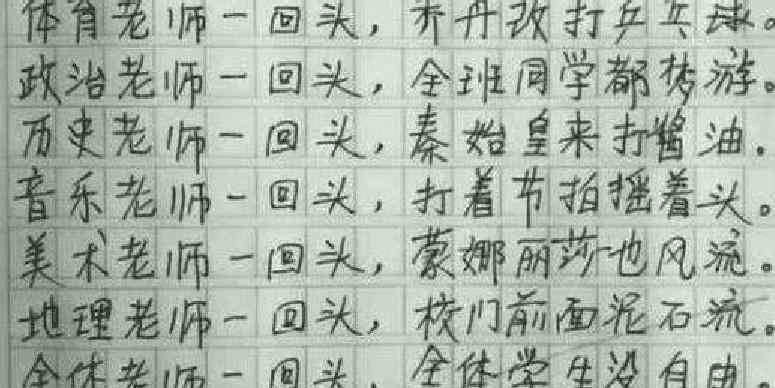 体育老师一回头，乔丹改打乒乓球。
政治老师一回头，全班同学都梦游。
历史老师一回头，秦始皇来打酱油。
音乐老师一回头，打着节拍摇着头。
美术老师一回头，蒙娜丽莎也风流。
地理老师一回头，校门前面泥石流。
全体老师一回头，全体学生没自由。